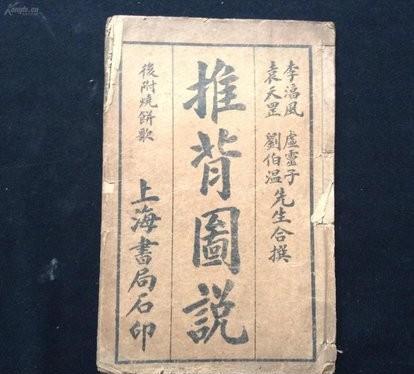 李湻風 虛靈子
袁天罡 劉伯温
先生合撰
推背圖説
後附燒餅歌
上海書局石印